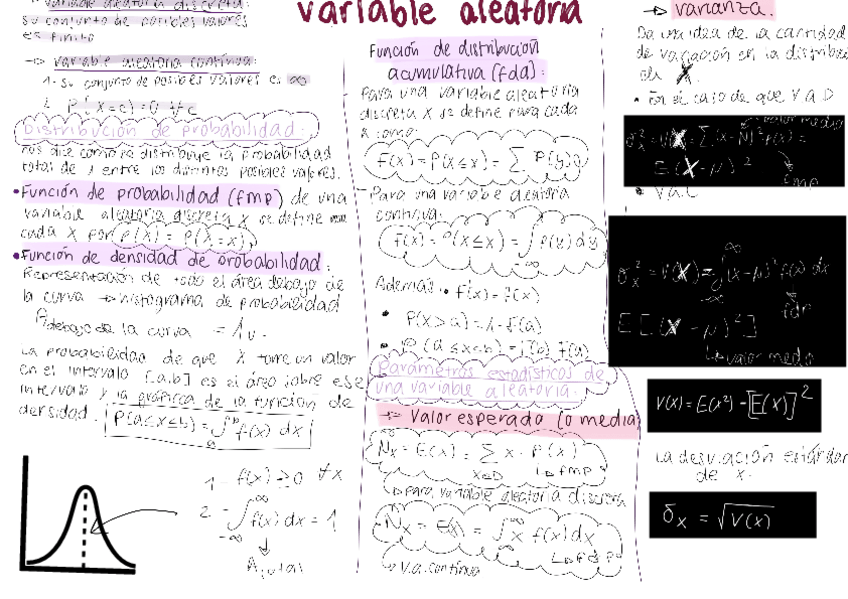 variable aleatoria
variable aleatoria discreta:
su conjunto de posibles valores
es finito
→ variable aleatoria continua:
1- su conjunto de posibles valores es ∞
2. P(X=c)=0 ∀c
Distribución de probabilidad:
nos dice como se distribuye la probabilidad
total de 1 entre los distintos posibles valores.
•Función de probabilidad (fmp) de una
variable aleatoria discreta X se define
cada X por p(x) = P(X=x)
•Función de densidad de probabilidad:
Representación de todo el área debajo de
la curva → histograma de probabilidad
A debajo de la curva = 1u.
La probabilidad de que X tome un valor
en el intervalo [a,b] es el área sobre ese
intervalo y la gráfica de la función de
densidad. P(a≤x≤b)=∫ᵃᵇ f(x) dx
1- f(x) ≥0 ∀x
2- ∫₋∞^∞ f(x) dx = 1
A total
Función de distribución
acumulativa (fda):
Para una variable aleatoria
discreta X se define para cada
x como:
F(x)=P(X≤x) = ∑ P(y)
Para una variable aleatoria
continua:
F(x)=P(X≤x)=∫₋∞ f(y) dy
Además: • F'(x)=f(x)
• P(X>a)=1-F(a)
• P(a≤x≤b)=F(b)-F(a)
Parámetros estadísticos de
una variable aleatoria:
→ Valor esperado (o media)
μx = E(x) = ∑ x · P(x)
x∈D ↳ fmp
↳ para variable aleatoria discreta
μx = E(x) = ∫₋∞^∞ x f(x)dx
↳ fdp
↳ v.a. continua
→ varianza.
Da una idea de la cantidad
de variación en la distribución
de X.
• En el caso de que V.A.D
valor medio
σx² = V(X) = ∑ (x-μ)² f(x) =
E(X-μ)²
fmp
• V.A.C
σx² = V(X) = ∫₋∞^∞ (x-μ)² f(x) dx
fdp
E[(X-μ)²]
↳ valor medio
V(X) = E(x²) - [E(X)]²
La desviación estándar
de x.
σx = √V(X)